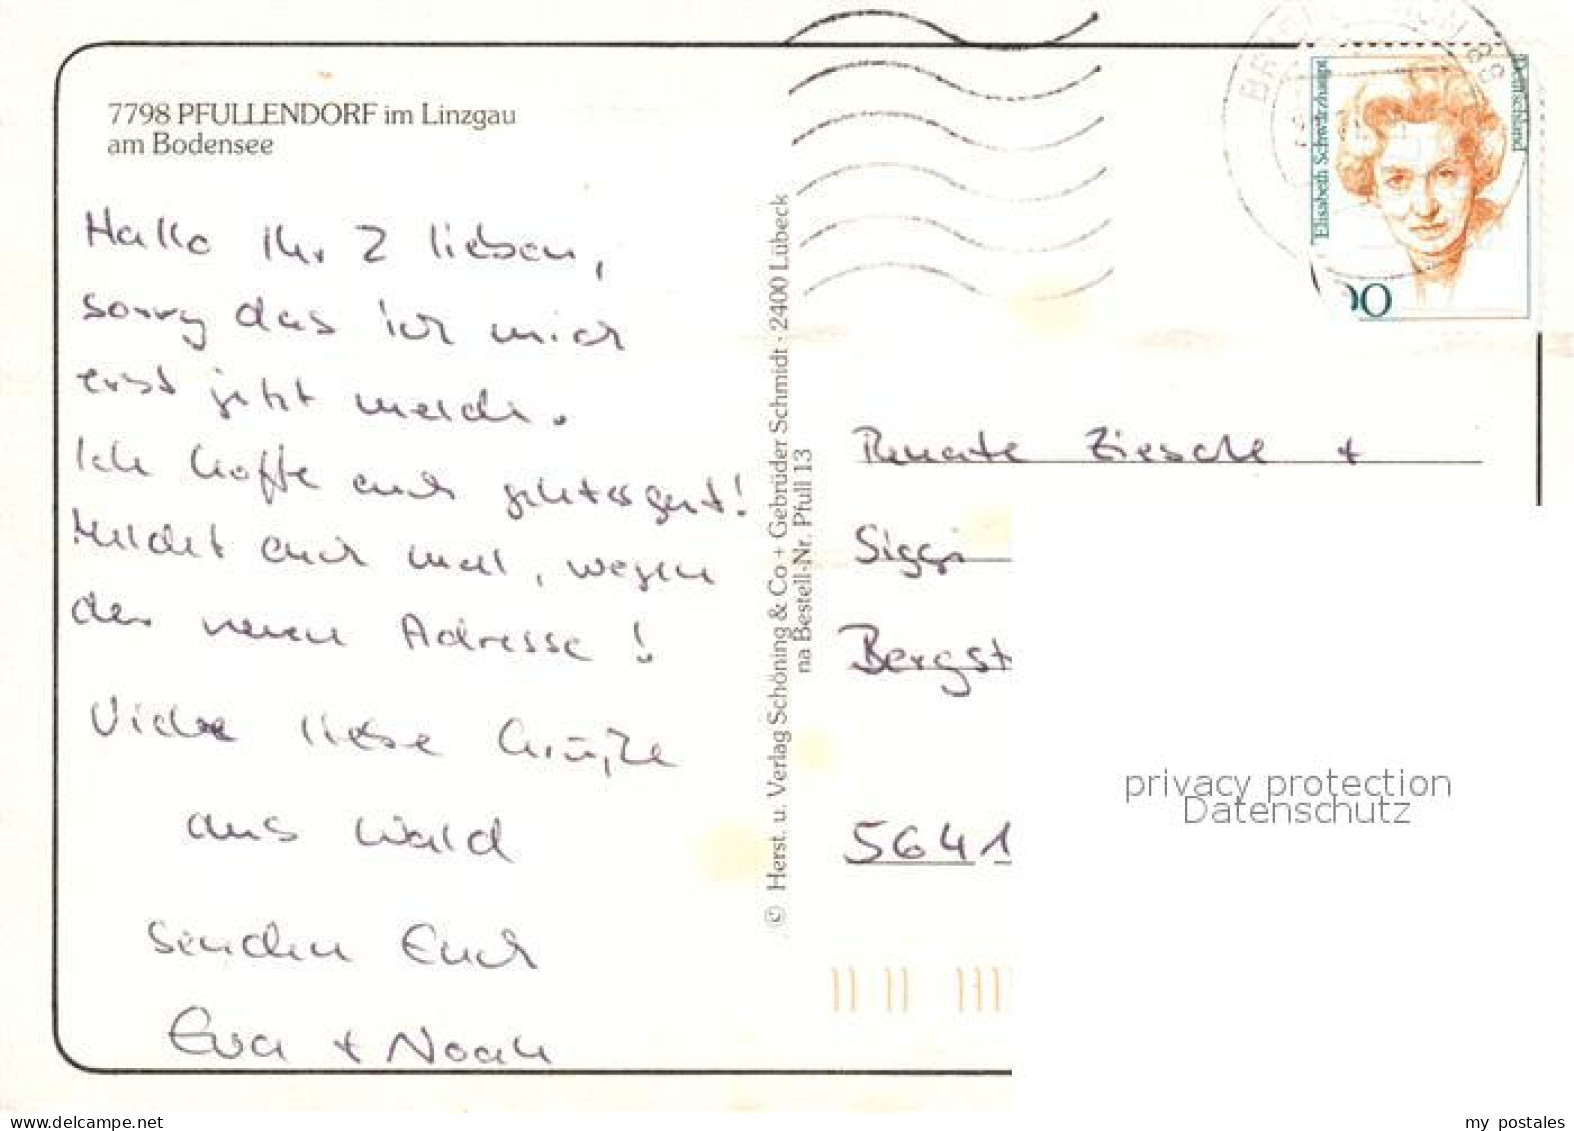 7798 PFULLENDORF im Linzgau
am Bodensee
Hallo Ihr 2 lieben,
sorry das ich mich
erst jetzt melde.
Ich hoffe euch geht es gut!
Meldet euch mal, wegen
der neuen Adresse!
Viele liebe Grüße
aus Wald
senden Euch
Eva + Noah
© Herst. u. Verlag Schöning & Co + Gebrüder Schmidt · 2400 Lübeck
na Bestell-Nr. Pfull 13
Elisabeth Schwarzhaupt
Deutschland
00
Renate Ziesche +
Siggi
Bergst
5641
privacy protection
Datenschutz
www.delcampe.net
my_postales